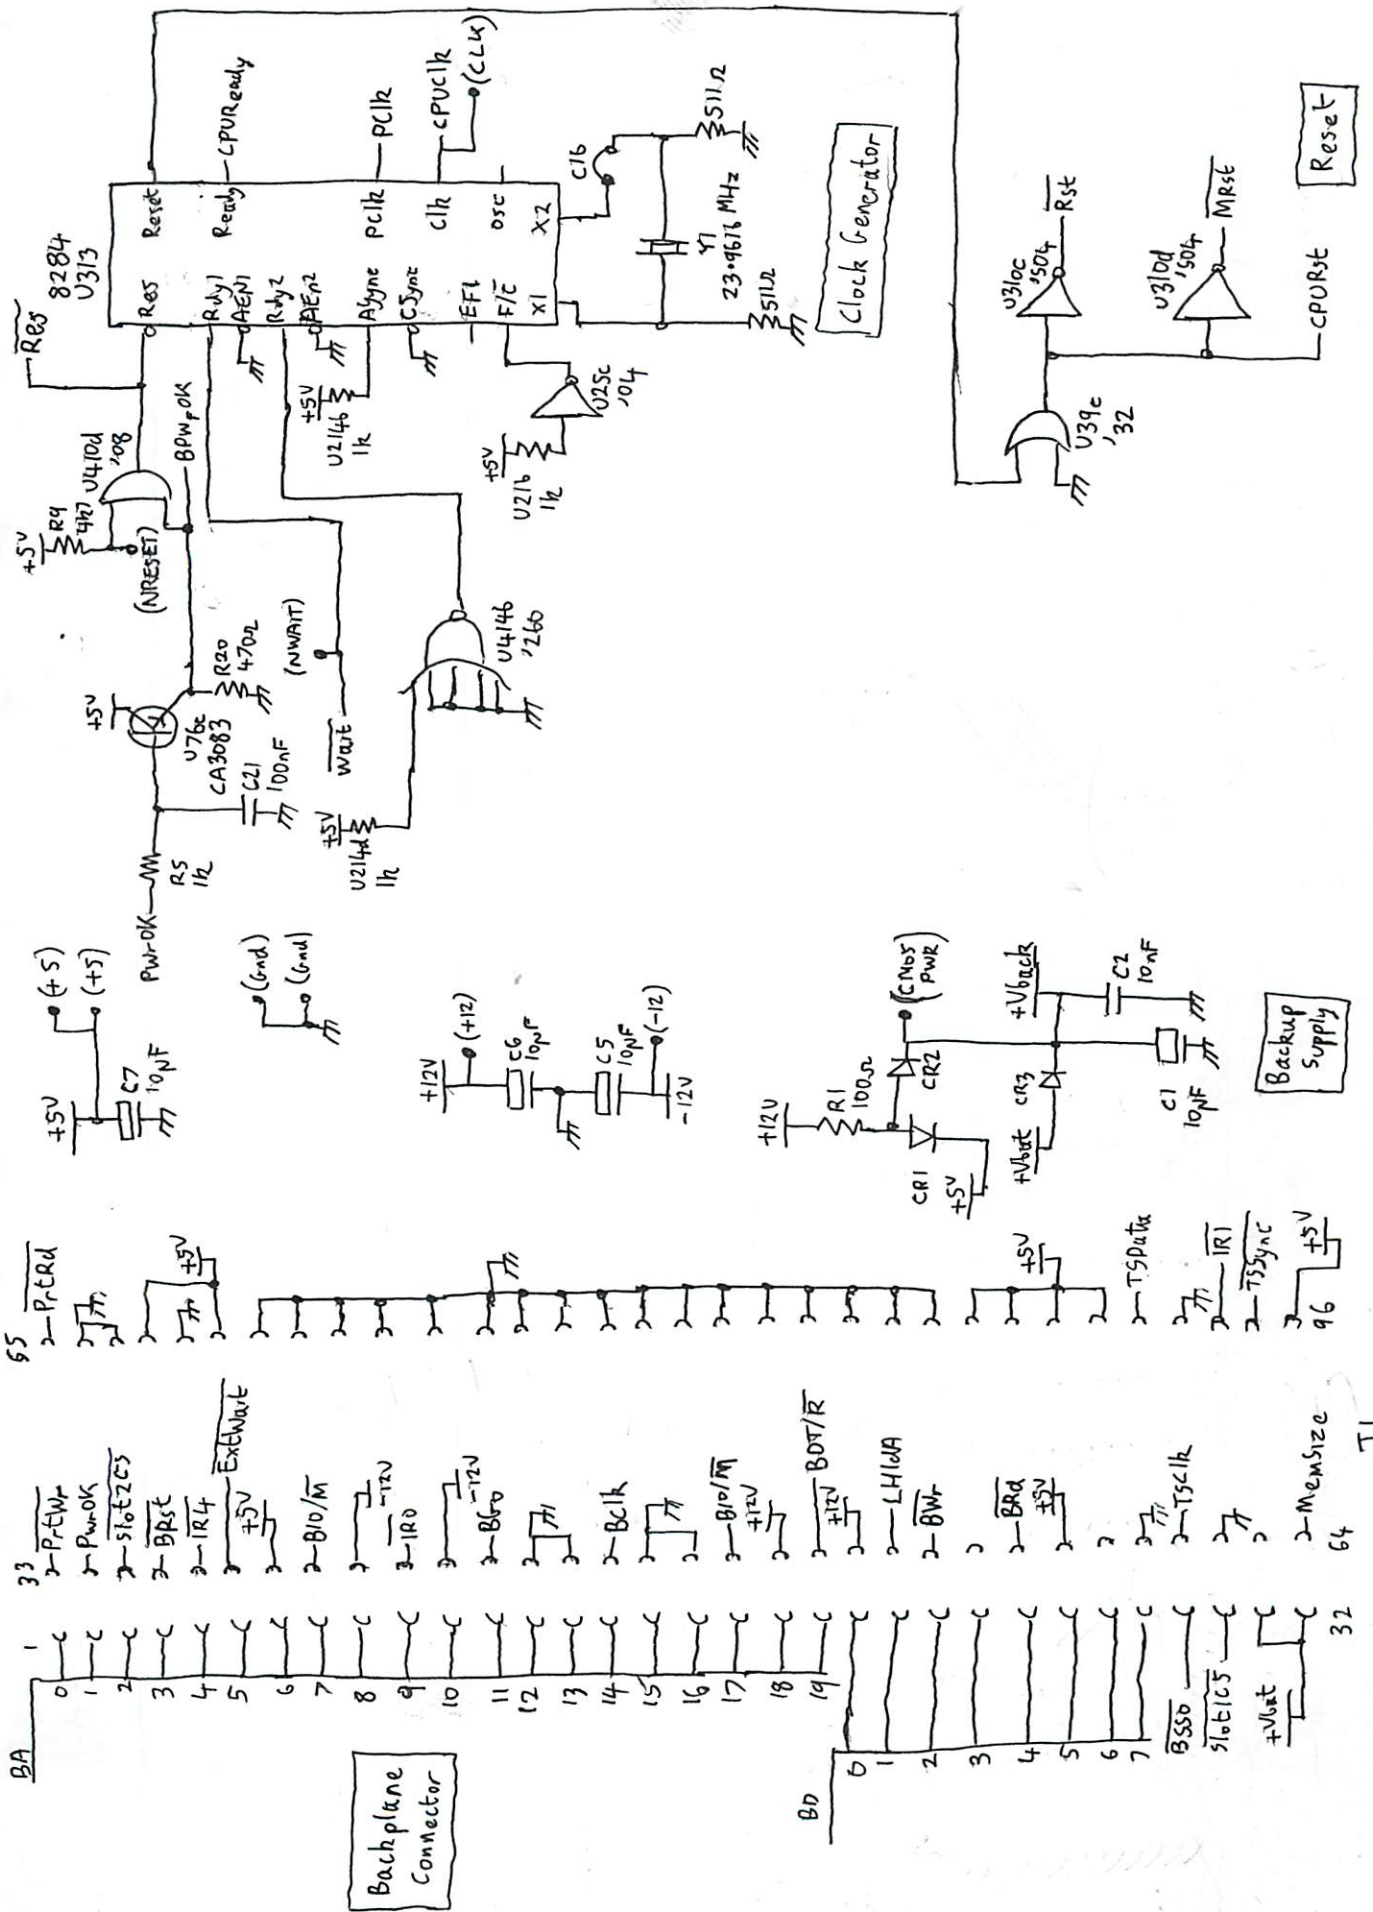 BA
1
0
1
2
3
4
5
6
7
8
9
10
11
12
13
14
15
16
17
18
19
BD
0
1
2
3
4
5
6
7
BSS0
Slot1CS
+Vbat
32
Backplane
Connector
33
PrtWr
PwrOK
Slot2CS
BRst
IR4
ExtWait
+5V
BIO/M
-12V
IR0
-12V
BG0
BClk
BIO/M
+12V
BDT/R
+12V
LHldA
BWr
BRd
+5V
TSClk
MemSize
64
J1
65
PrtRd
+5V
+5V
TSData
IR1
TSSync
+5V
96
+5V
(+5)
(+5)
C7
10µF
(Gnd)
(Gnd)
+12V
(+12)
C6
10µF
C5
10µF
(-12)
-12V
+12V
R1
100Ω
CR1
+5V
CR2
(CMOS
PWR)
+Vbat
CR3
+Vback
C1
10µF
C2
10nF
Backup
Supply
PwrOK
R5
1k
+5V
U76c
CA3083
C21
100nF
R20
470Ω
+5V
R4
4k7
(NRESET)
U410d
'08
BPWrOK
Res
Wait
(NWAIT)
+5V
U214d
1k
U414b
'260
+5V
U214b
1k
+5V
U21b
1k
U25c
'04
8284
U313
Res
Rdy1
AEN1
Rdy2
AEN2
ASync
CSync
EFI
F/C
X1
Reset
Ready
PClk
Clk
Osc
X2
CPUReady
PClk
CPUClk
(CLK)
C16
Y1
23.9616 MHz
511Ω
511Ω
Clock Generator
U39c
'32
U310c
'S04
Rst
U310d
'S04
MRst
CPURst
Reset